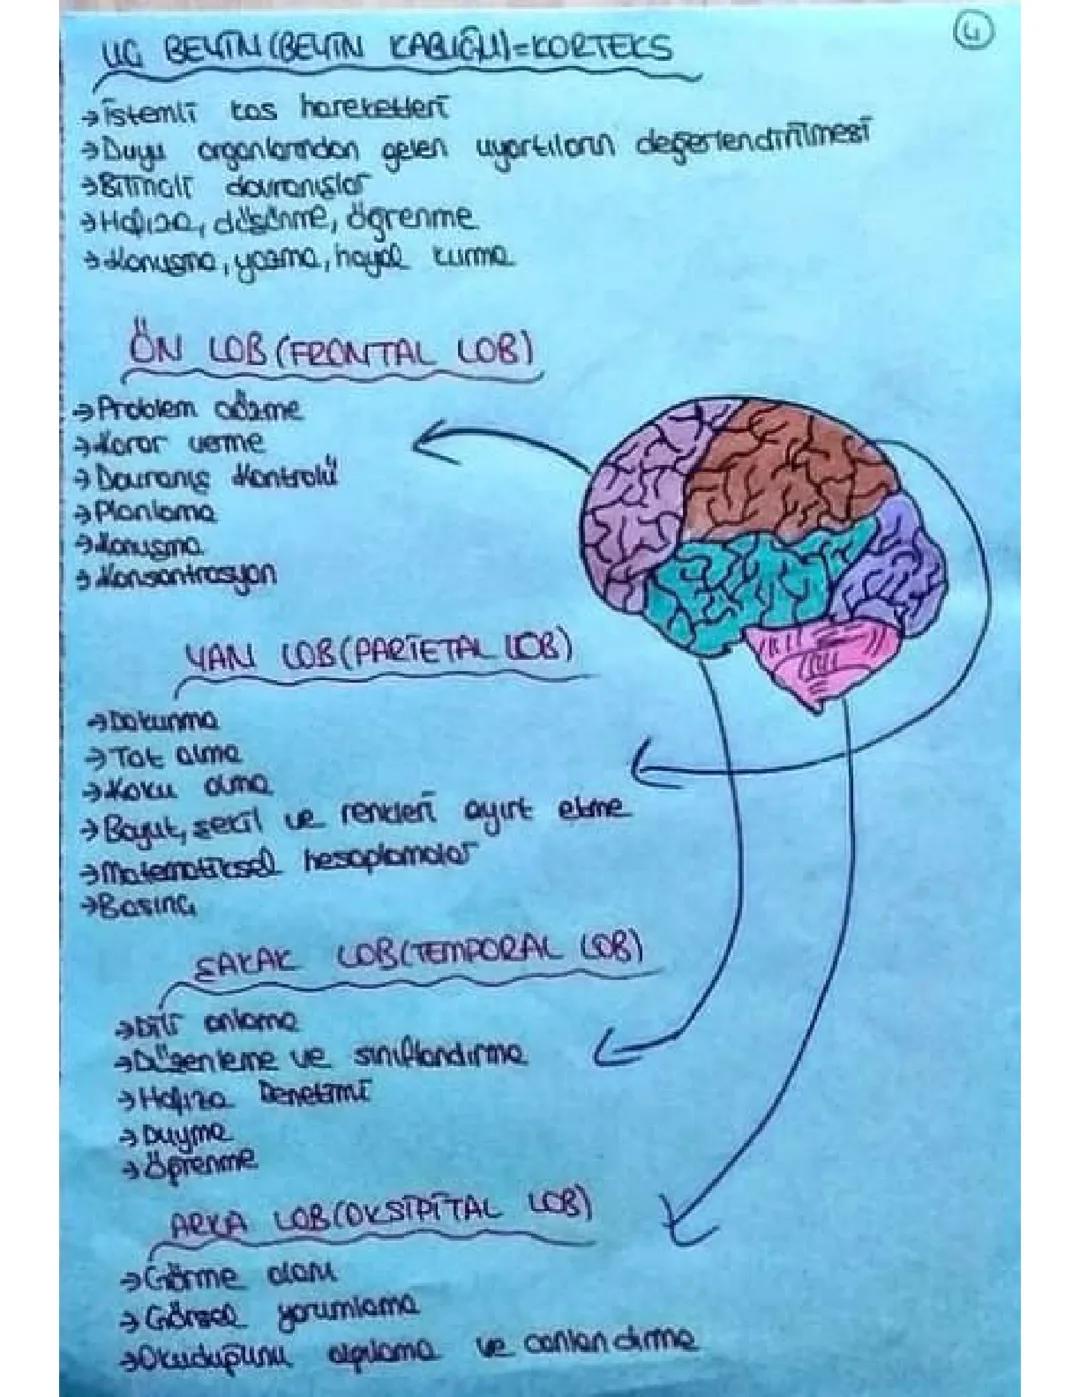 4
UÇ BEYİN (BEYİN KABUĞU)=KORTEKS
→ İstemli kas hareketleri
→ Duyu organlarından gelen uyartıların değerlendirilmesi
→ Bilinçli davranışlar
→ Hafıza, düşünme, öğrenme
→ Konuşma, yazma, hayal kurma
ÖN LOB (FRONTAL LOB)
→ Problem çözme
→ Karar verme
→ Davranış Kontrolü
→ Planlama
→ Konuşma
→ Konsantrasyon
YAN LOB (PARİETAL LOB)
→ Dokunma
→ Tat alma
→ Koku alma
→ Boyut, şekil ve renkleri ayırt etme
→ Matematiksel hesaplamalar
→ Basınç
ŞAKAK LOB (TEMPORAL LOB)
→ Dili anlama
→ Düzenleme ve sınıflandırma
→ Hafıza Denetimi
→ Duyma
→ Öğrenme
ARKA LOB (OKSİPİTAL LOB)
→ Görme alanı
→ Görsel yorumlama
→ Okuduğunu algılama ve canlandırma